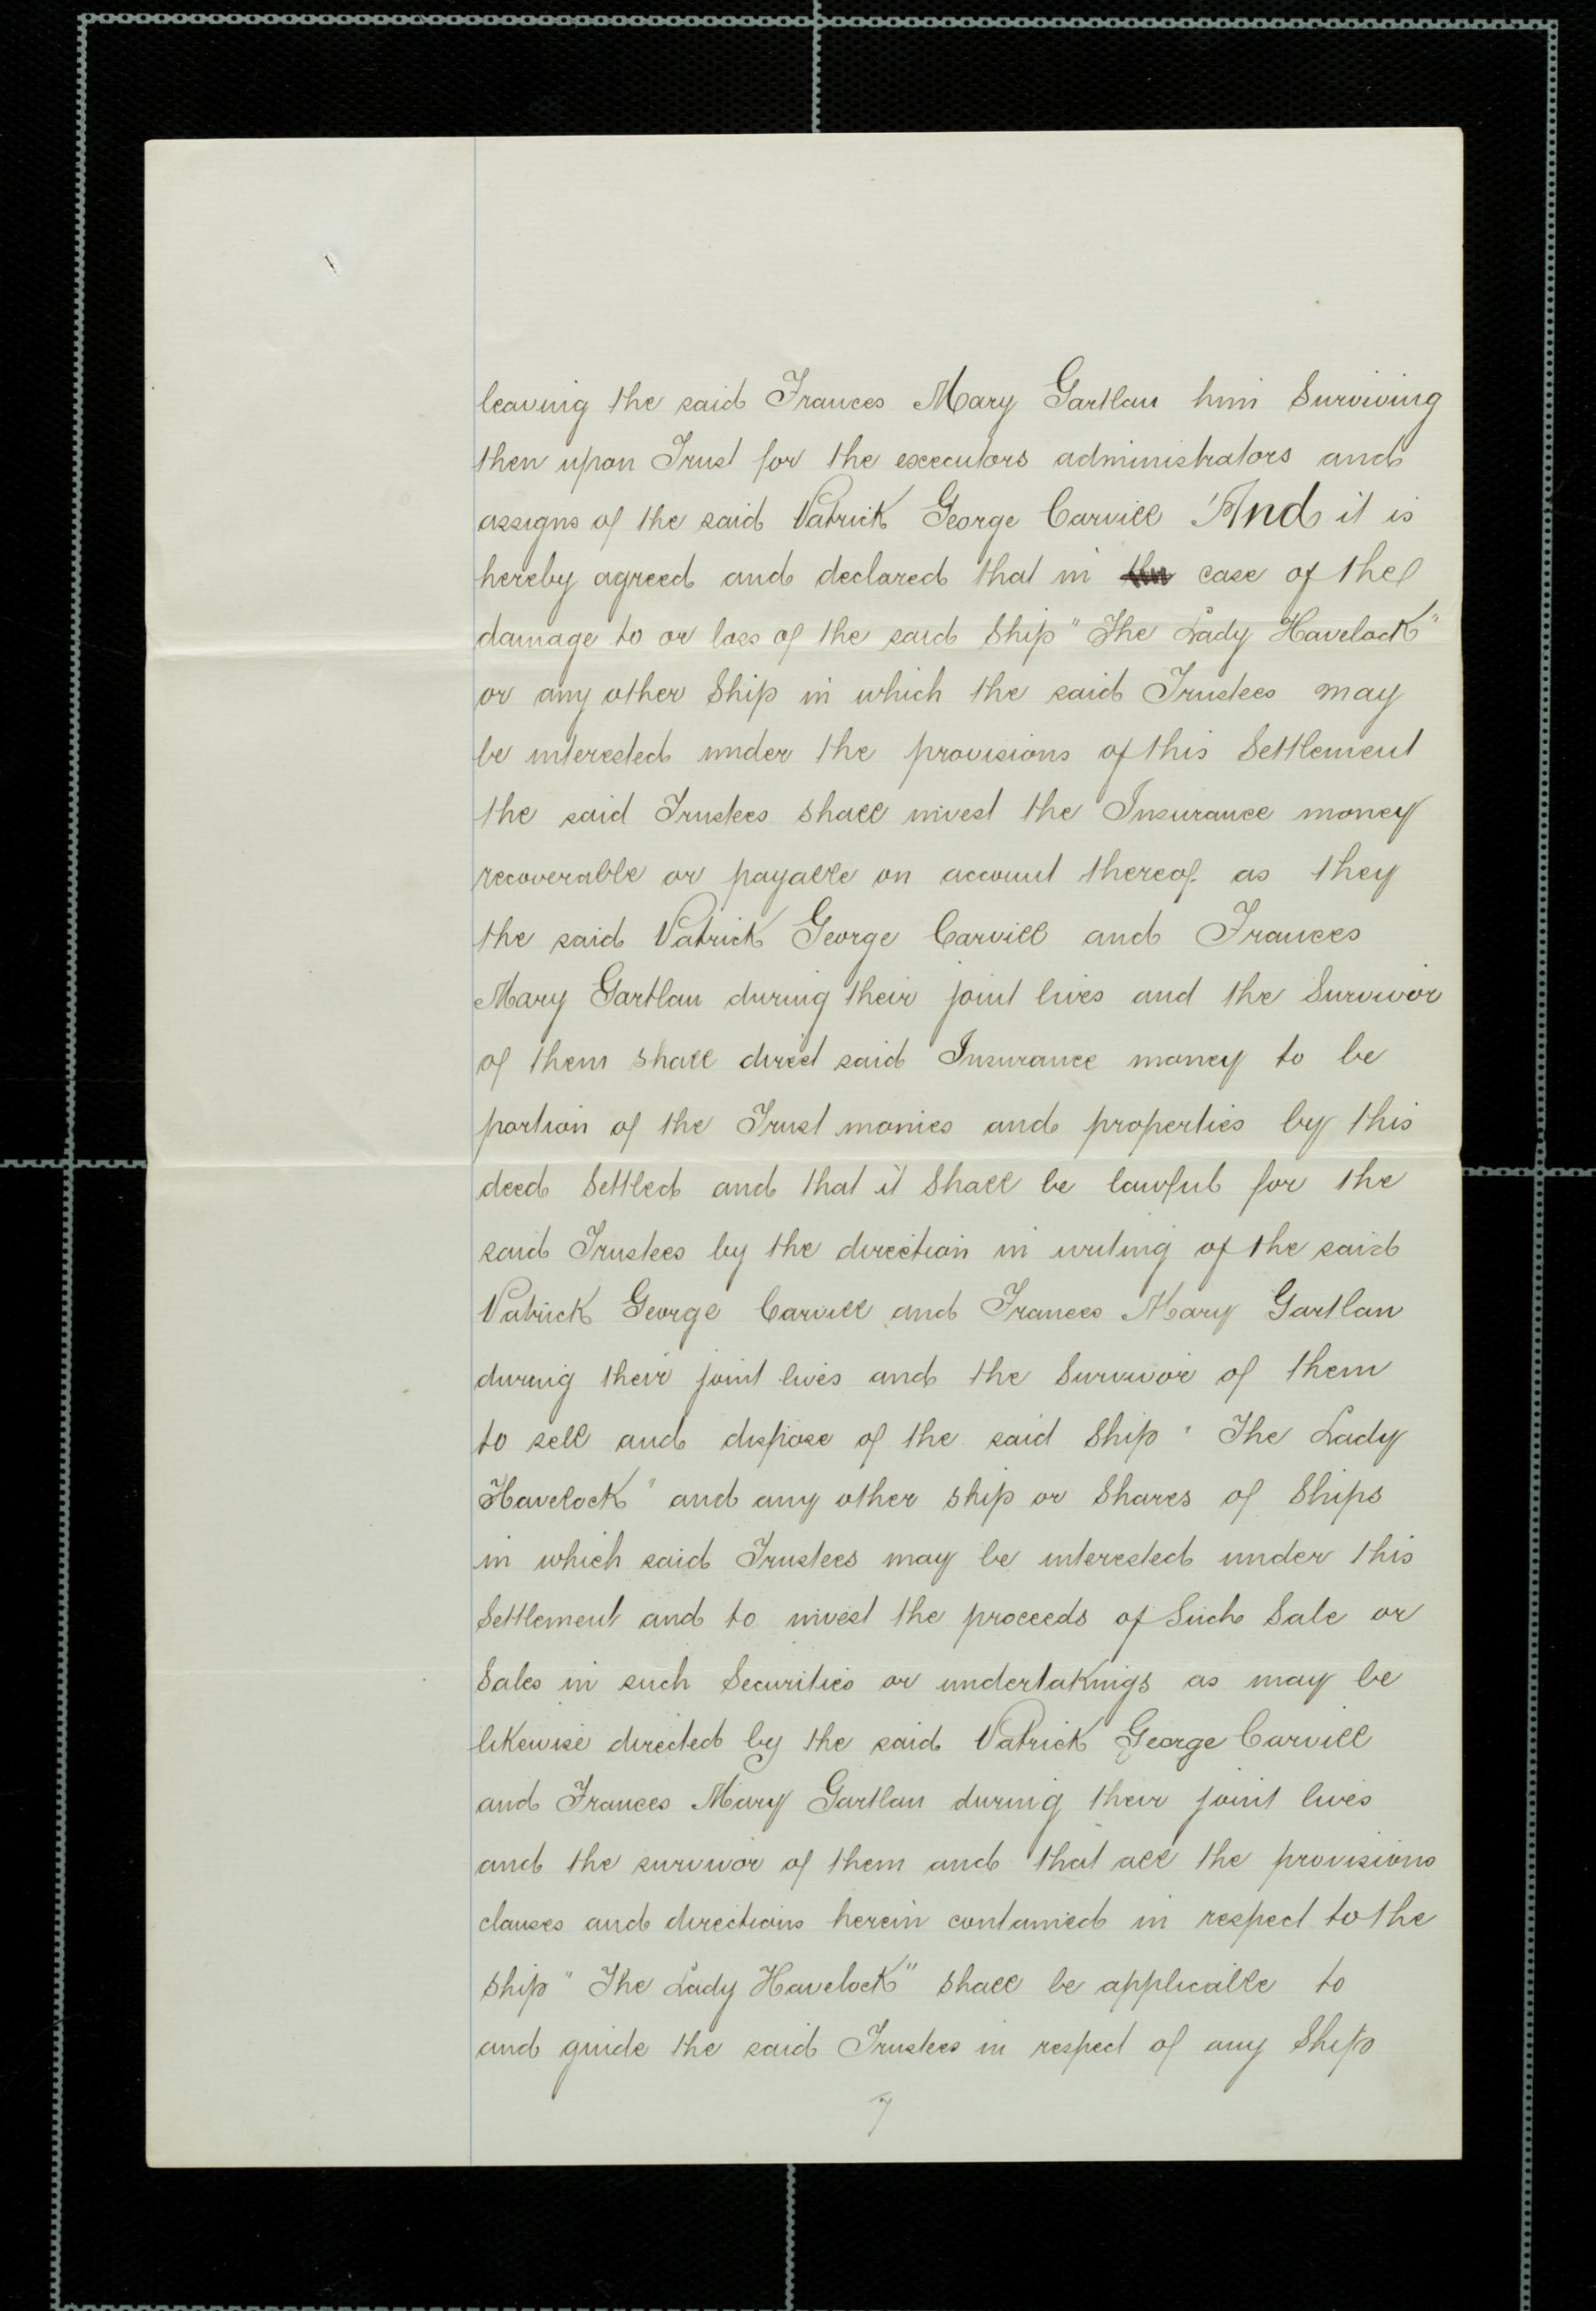 leaving the said Frances Mary Gartlan him Surviving
then upon Trust for the executors administrators and
assigns of the said Patrick George Carvill And it is
hereby agreed and declared that in the case of the
damage to or loss of the said Ship "The Lady Havelock"
or any other Ship in which the said Trustees may
be interested under the provisions of this Settlement
the said Trustees shall invest the Insurance money
recoverable or payable on account thereof as they
the said Patrick George Carvill and Frances
Mary Gartlan during their joint lives and the Survivor
of them shall direct said Insurance money to be
portion of the Trust monies and properties by this
deed Settled and that it shall be lawful for the
said Trustees by the direction in writing of the said
Patrick George Carvill and Frances Mary Gartlan
during their joint lives and the Survivor of them
to sell and dispose of the said Ship "The Lady
Havelock" and any other ship or Shares of Ships
in which said Trustees may be interested under this
Settlement and to invest the proceeds of Such Sale or
Sales in such Securities or undertakings as may be
likewise directed by the said Patrick George Carvill
and Frances Mary Gartlan during their joint lives
and the survivor of them and that all the provisions
clauses and directions herein contained in respect to the
ship "The Lady Havelock" shall be applicable to
and guide the said Trustees in respect of any Ship
7